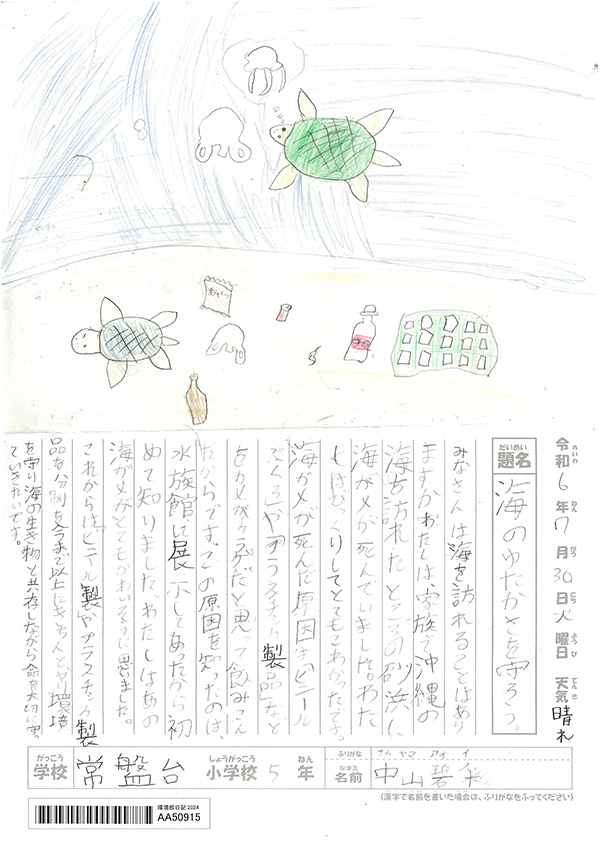 令和6年7月30日火曜日 天気 晴れ
れいわ ねん がつ にち ようび てんき
だいめい
題名 海のゆたかさを守ろう。
みなさんは海を訪れることはあり
ますか。わたしは、家族で沖縄の
海を訪れたところの砂浜に
海ガメが死んでいました。わた
しはびっくりしてとてもこわかったです。
海ガメが死んだ原因は「ビニール
ぶくろ」や「プラスチック製品」など
をカメがクラゲだと思って飲みこん
だからです。この原因を知ったのは、
水族館に展示してあったから初
めて知りました。わたしはあの
海ガメがとてもかわいそうに思いました。
これからはビニール製やプラスチック製
品を分別を今まで以上にきちんとやり環境
を守り海の生き物と共存しながら命を大切に守っ
ていきたいです。
がっこう しょうがっこう ねん ふりがな ナカ ヤマ アオ イ
学校 常盤台 小学校 5年 なまえ 名前 中山碧彩
(漢字で名前を書いた場合は、ふりがなをふってください)
環境絵日記 2024
AA50915